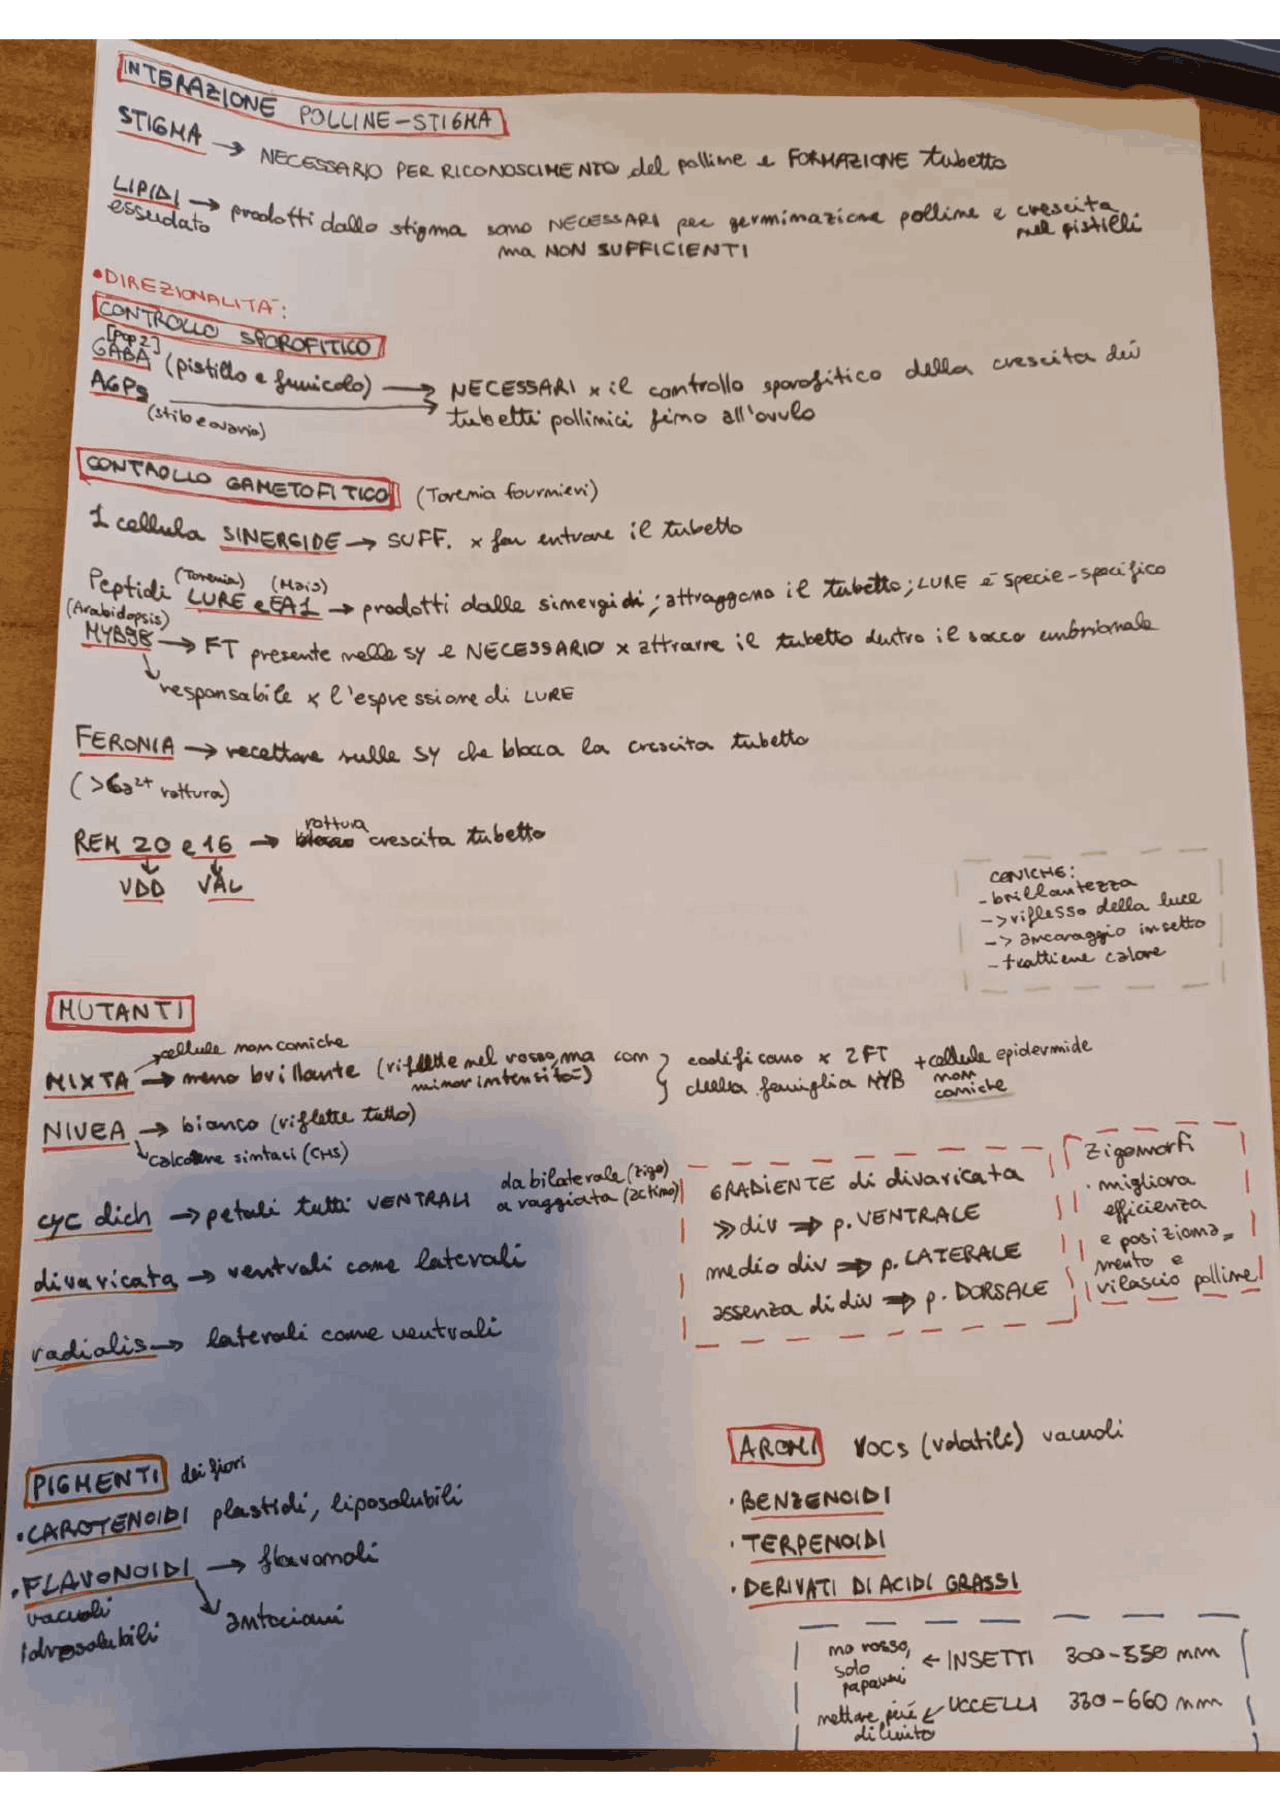 INTERAZIONE POLLINE-STIGMA
STIGMA → NECESSARIO PER RICONOSCIMENTO del polline e FORMAZIONE tubetto
LIPIDI → prodotti dallo stigma sono NECESSARI per germinazione polline e crescita
essudato
nel pistilli
ma NON SUFFICIENTI
•DIREZIONALITÀ:
CONTROLLO SPOROFITICO
[pop2]
GABA (pistillo e funicolo) → NECESSARI x il controllo sporofitico della crescita dei
AGPs → tubetti pollinici fino all'ovulo
(stilo e ovario)
CONTROLLO GAMETOFITICO (Torenia fournieri)
1 cellula SINERGIDE → SUFF. x far entrare il tubetto
(Torenia) (Mais)
Peptidi LURE e EA1 → prodotti dalle sinergidi; attraggono il tubetto; LURE è specie-specifico
(Arabidopsis)
MYB98 → FT presente nelle sy e NECESSARIO x attrarre il tubetto dentro il sacco embrionale
responsabile x l'espressione di LURE
FERONIA → recettore sulle sy che blocca la crescita tubetto
(>Ca2+ rottura)
rottura
REM 20 e 16 → blocco crescita tubetto
VDD VAL
CONICHE:
- brillantezza
-> riflesso della luce
-> ancoraggio insetto
- trattiene calore
MUTANTI
cellule non coniche
MIXTA → meno brillante (riflette nel rosso, ma con } codificano x 2FT + cellule epidermide
minor intensità) } della famiglia MYB non
coniche
NIVEA → bianco (riflette tutto)
calcone sintasi (CHS)
da bilaterale (zigo)
cyc dich → petali tutti VENTRALI a raggiata (actino)
divaricata → ventrali come laterali
radialis → laterali come ventrali
GRADIENTE di divaricata
>> div ⇒ p. VENTRALE
medio div ⇒ p. LATERALE
assenza di div ⇒ p. DORSALE
Zigomorfi
· migliora
efficienza
e posiziona=
mento e
rilascio polline
PIGMENTI dei fiori
•CAROTENOIDI plastidi, liposolubili
•FLAVONOIDI → flavonoli
vacuoli antociani
Idrosolubili
AROMI VOCs (volatili) vacuoli
· BENZENOIDI
· TERPENOIDI
· DERIVATI DI ACIDI GRASSI
no rosso,
solo ← INSETTI 300-550 nm
papaveri
nettare più ← UCCELLI 330-660 nm
diluito